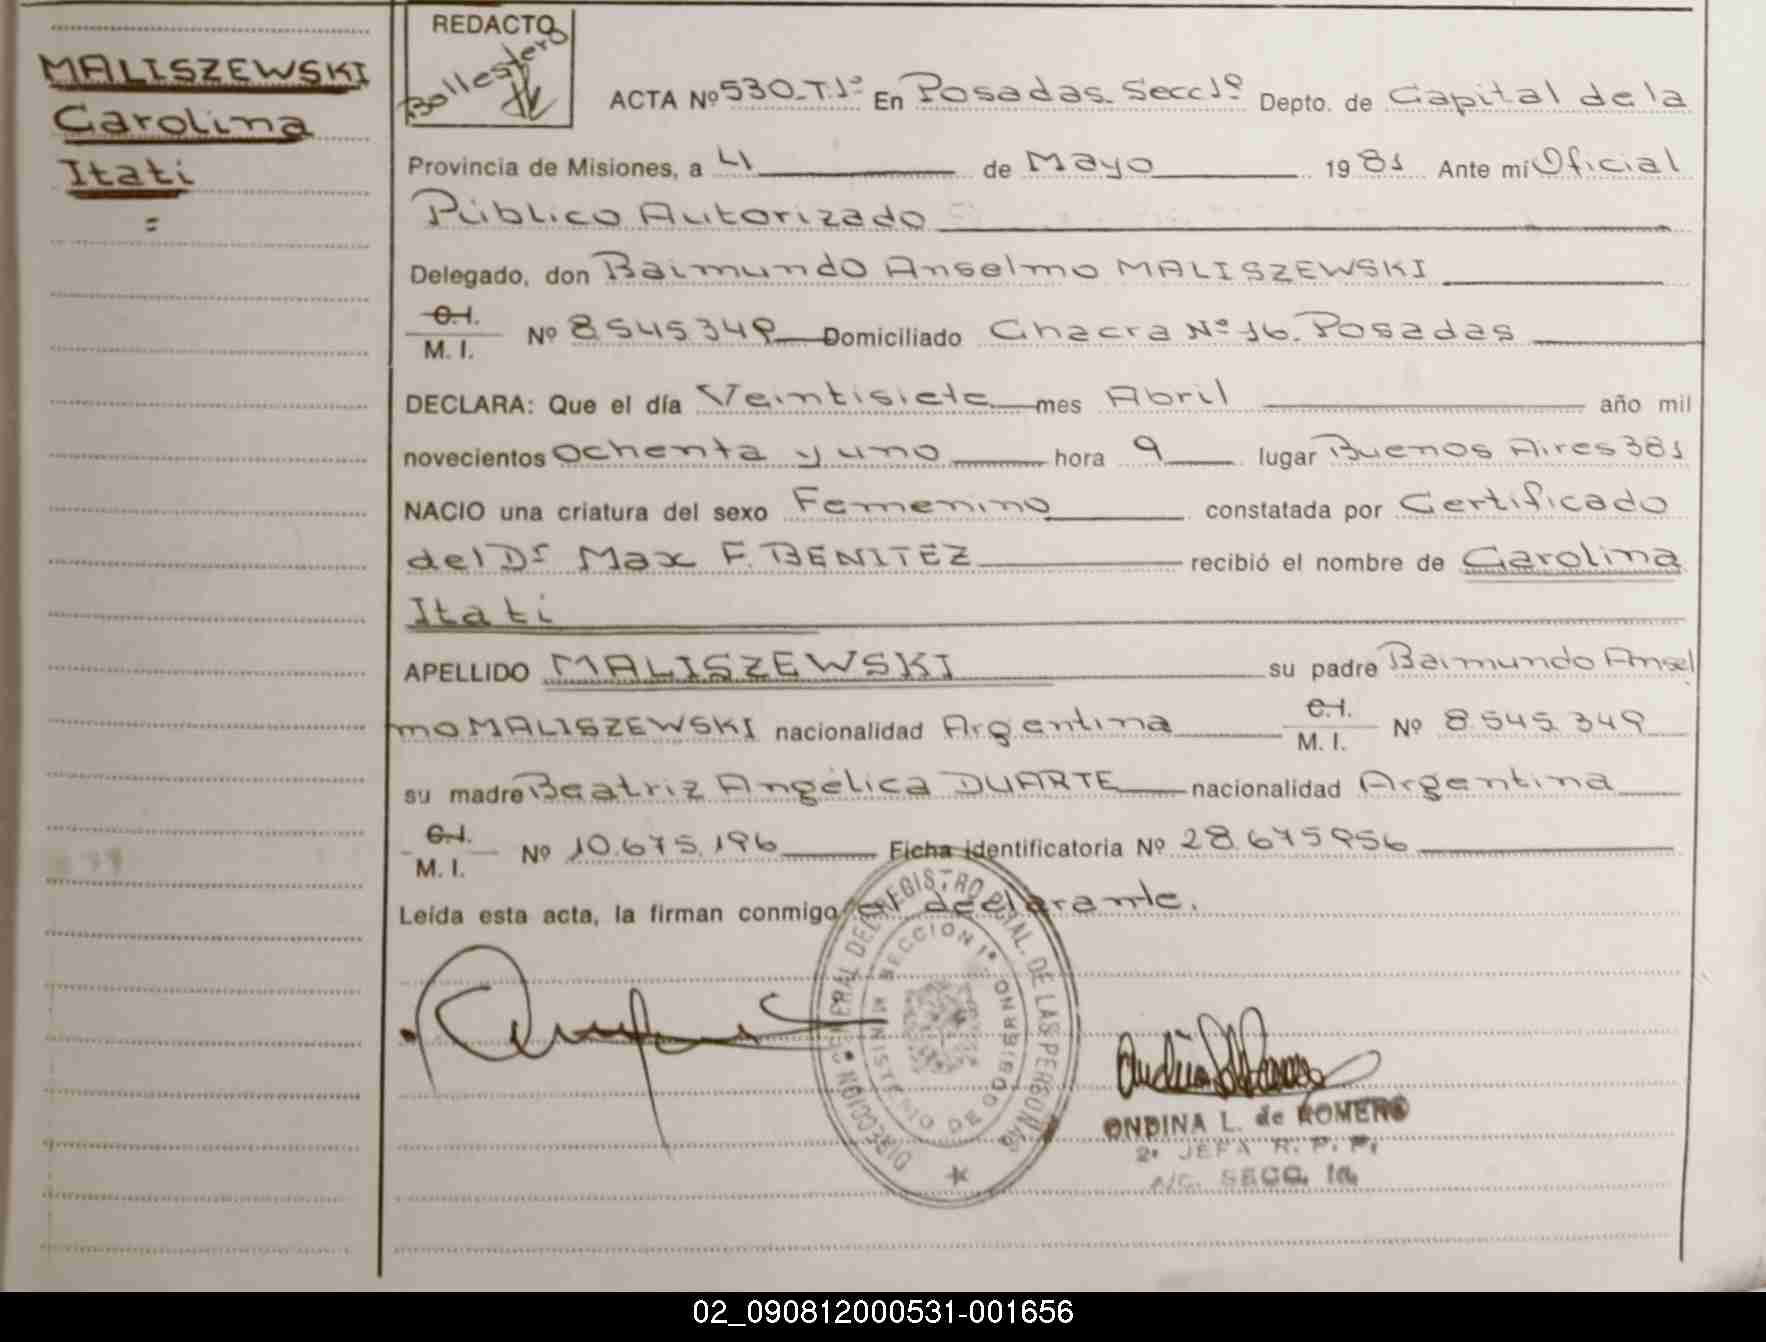 MALISZEWSKI
Carolina
Itatí
=
REDACTO
Ballestero
ACTA Nº 530-T1º En Posadas Secc 1º Depto. de Capital de la
Provincia de Misiones, a 4 de Mayo 1981 Ante mi Oficial
Público Autorizado
Delegado, don Raimundo Anselmo MALISZEWSKI
C.I.
M. I. Nº 8.545.349 Domiciliado Chacra Nº 16. Posadas
DECLARA: Que el día Veintisiete mes Abril año mil
novecientos ochenta y uno hora 9 lugar Buenos Aires 381
NACIO una criatura del sexo Femenino constatada por Certificado
del Dr Max F. BENITEZ recibió el nombre de Carolina
Itatí
APELLIDO MALISZEWSKI su padre Raimundo Ansel
mo MALISZEWSKI nacionalidad Argentina C.I. M. I. Nº 8.545.349
su madre Beatriz Angélica DUARTE nacionalidad Argentina
C.I.
M. I. Nº 10.675.196 Ficha identificatoria Nº 28.675956
Leída esta acta, la firman conmigo el declarante.
DIRECCION GENERAL DEL REGISTRO PCIAL. DE LAS PERSONAS
SECCION 1ª
MINISTERIO DE GOBIERNO
ONDINA L. de ROMERO
2ª JEFA R. P. P.
A/C. SECC. 1a.
02_090812000531-001656